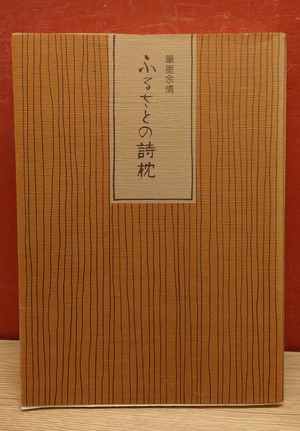 筆墨余情
ふるさとの詩枕